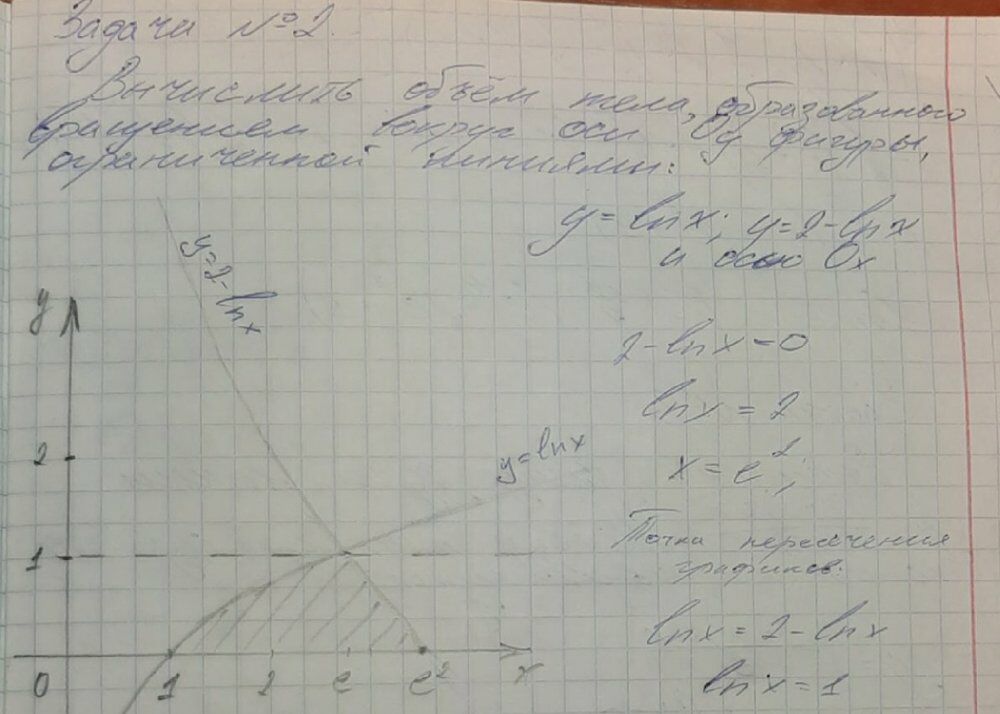 Задачи №2.
Вычислить объём тела, образованного
вращением вокруг оси Oy фигуры,
ограниченной линиями:
y = lnx; y=2-lnx
и осью Ox
y=2-lnx
y
2-lnx=0
lnx = 2
2
y=lnx
x = e²;
Точка пересечения
графиков:
1
lnx = 2-lnx
0 1 2 e e² x
lnx = 1